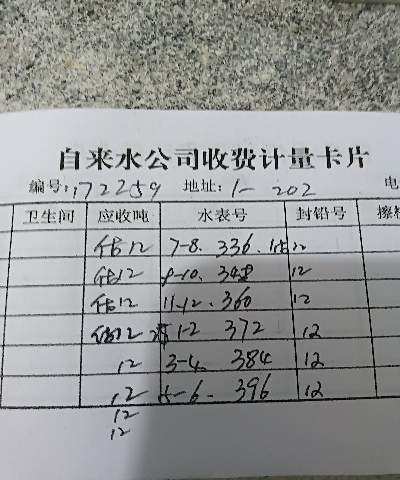 自来水公司收费计量卡片
编号: 172259 地址: 1-202 电
卫生间 应收吨 水表号 封铅号 擦
估12 7-8. 336. 估12
估12 9-10. 348 12
估12 11-12. 360 12
估12 1-2 372 12
12 3-4. 384 12
12 5-6. 396 12
12
12